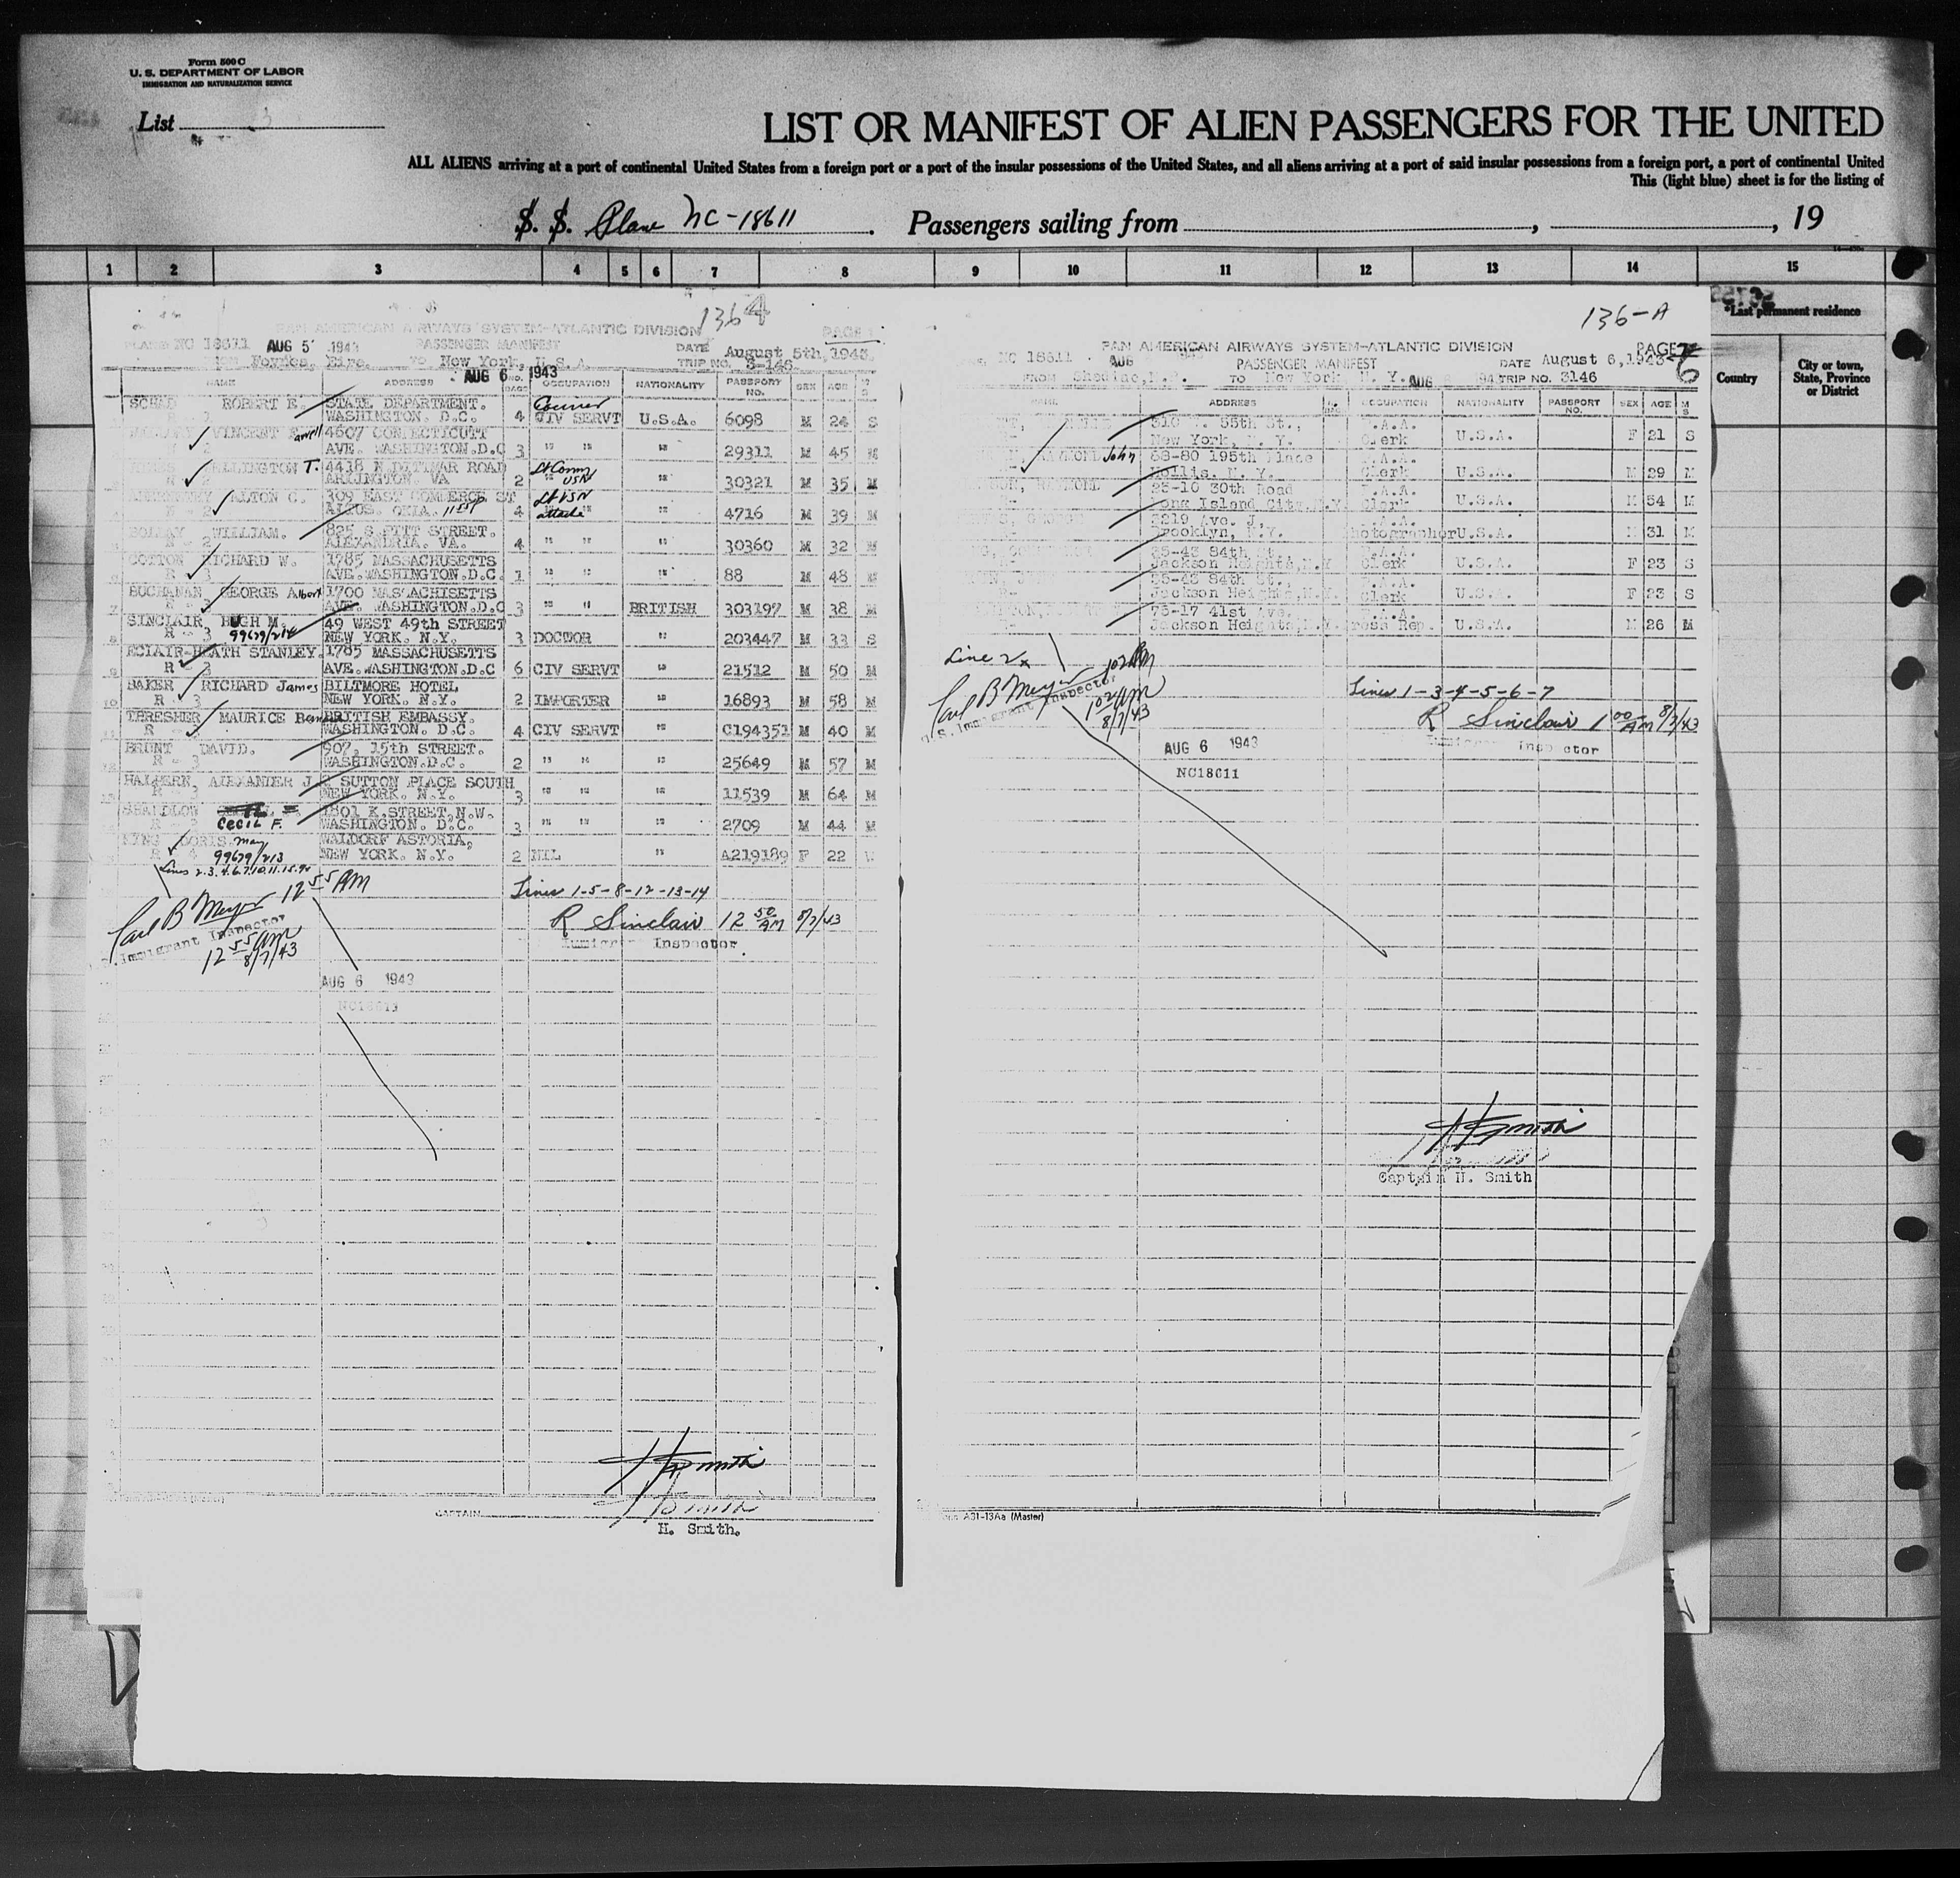 Form 500 C
U. S. DEPARTMENT OF LABOR
IMMIGRATION AND NATURALIZATION SERVICE
List
LIST OR MANIFEST OF ALIEN PASSENGERS FOR THE UNITED
ALL ALIENS arriving at a port of continental United States from a foreign port or a port of the insular possessions of the United States, and all aliens arriving at a port of said insular possessions from a foreign port, a port of continental United
This (light blue) sheet is for the listing of
S. S. Plane NC-18611. Passengers sailing from , , 19
1 2 3 4 5 6 7 8 9 10 11 12 13 14 15
*Last permanent residence
Country City or town, State, Province or District
1364
PAN AMERICAN AIRWAYS SYSTEM-ATLANTIC DIVISION PAGE 1
PLANE NC 18611 AUG 5 1943 PASSENGER MANIFEST DATE August 5th, 1943.
Foynes, Eire. TO New York, U.S.A. TRIP NO. 3-146
AUG 6 1943
NAME ADDRESS NO. BAGS OCCUPATION NATIONALITY PASSPORT NO. SEX AGE
SCHAD ROBERT E. STATE DEPARTMENT. Courier
WASHINGTON. D.C. 4 CIV SERVT U.S.A. 6098 M 24 S
VINCENT 4607 CONNECTICUTT
AVE. WASHINGTON.D.C 3 " " " 29311 M 45 M
ELLINGTON T. 4418 N DITTMAR ROAD Lt Comm
ARLINGTON. VA 2 USN " 30321 M 35 M
ALTON C. 309 EAST COMMERCE ST Lt USN
ALTUS. OKLA. 4 attache " 4716 M 39 M
WILLIAM. 825 S. PITT STREET.
ALEXANDRIA. VA. 4 " " " 30360 M 32 M
COTTON RICHARD W. 1785 MASSACHUSETTS
R - 3 AVE.WASHINGTON.D.C. 1 " " " 88 M 48
BUCHANAN GEORGE Albert 1700 MASSACHISETTS
AVE. WASHINGTON.D.C 3 " " BRITISH 303197 M 38 M
SINCLAIR, HUGH M. 49 WEST 49th STREET
R - 3 99679/214 NEW YORK. N.Y. 3 DOCTOR " 203447 M 33 S
ECLAIR-HEATH STANLEY. 1785 MASSACHUSETTS
R - 3 AVE.WASHINGTON.D.C 6 CIV SERVT " 21512 M 50 M
BAKER RICHARD James BILTMORE HOTEL
R - 3 NEW YORK. N.Y. 2 IMPORTER " 16893 M 58 M
THRESHER MAURICE BRITISH EMBASSY.
R - WASHINGTON. D.C. 4 CIV SERVT " C194351 M 40 M
BRUNT DAVID. 907, 15th STREET.
R - 3 WASHINGTON.D.C. 2 " " " 25649 M 57 M
HALPERN, ALEXANDER J. SUTTON PLACE SOUTH
R - 3 NEW YORK. N.Y. 3 " " " 11539 M 64 M
1801 K.STREET,N.W.
CECIL F. WASHINGTON. D.C. 3 " " " 2709 M 44 M
KING DORIS May WALDORF ASTORIA,
R 4 99679/213 NEW YORK. N.Y. 2 NIL " A219189 F 22
Lines 2.3.4.6.7.10.11.15.9x
Carl B Meyer 12 55 AM
Immigrant Inspector
12 55 am
8/7/43
Lines 1-5-8-12-13-14
R Sinclair 12 50 AM 8/7/43
Immigrant Inspector
AUG 6 1943
NC18611
CAPTAIN
H. Smith.
136-A
PAN AMERICAN AIRWAYS SYSTEM-ATLANTIC DIVISION PAGE
NC 18611 AUG PASSENGER MANIFEST DATE August 6,1943
FROM Shediac,N.B. TO New York N. Y. AUG TRIP NO. 3146
NAME ADDRESS OCCUPATION NATIONALITY PASSPORT NO. SEX AGE M S
310 W. 55th St., P.A.A.
New York, N. Y. Clerk U.S.A. F 21 S
John 88-80 195th Place P.A.A.
Hollis, N. Y. Clerk U.S.A. M 29 M
25-10 30th Road P.A.A.
Long Island City,N.Y. Clerk U.S.A. M 54 M
3219 Ave. J., P.A.A.
Brooklyn, N.Y. Photographer U.S.A. M 31 M
35-43 84th St. P.A.A.
Jackson Heights,N.Y. Clerk U.S.A. F 23 S
35-43 84th St., P.A.A.
Jackson Heights,N.Y. Clerk U.S.A. F 23 S
75-17 41st Ave. P.A.A.
Jackson Heights,N.Y. Press Rep. U.S.A. M 26 M
Line 2x
Carl B Meyer
U.S. Immigrant Inspector
1 02 AM
8/7/43
Lines 1-3-4-5-6-7
R Sinclair 1 00 AM 8/7/43
Immigrant Inspector
AUG 6 1943
NC18611
H Smith
Captain H. Smith
Form A31-13Aa (Master)